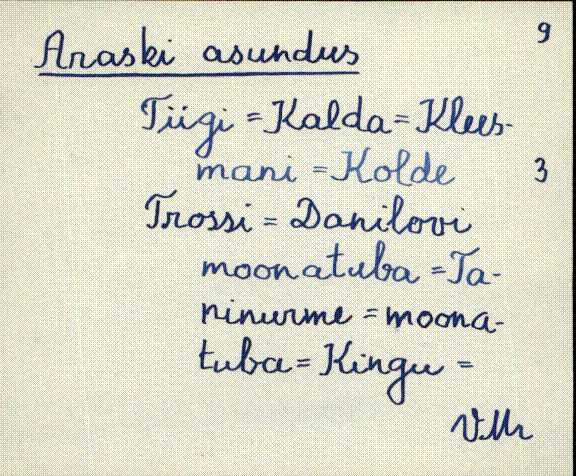 9
Araski asundus
Tiigi = Kalda = Klees-
mani = Kolde 3
Trossi = Danilovi
moonatuba = Ta-
ninurme = moona-
tuba = Kingu =
VMr